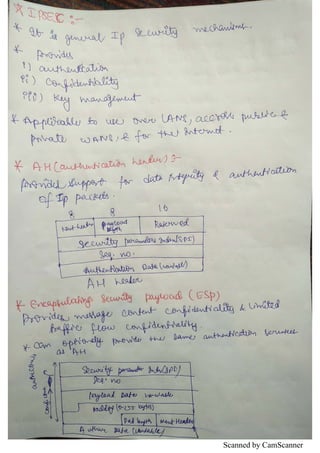 * IPSEC :-
* It is general Ip Security mechanisms.
* provides
i) authentication
ii) Confidentiality
iii) Key management
* Applicable to use over LANS, across public &
private WANS, & for the Internet.
* AH (authentication header) :-
provides support for data integrity & authentication
of Ip packets.
8 8 16
Next header payload length Reserved
Security parameters Index (SPI)
Seq. no.
Authentication Data (variable)
AH header
* Encapsulating Security payload (ESP)
Provides message content confidentiality & limited
traffic flow confidentiality
* Can optionally provide the same authentication services
as AH
Security parameter Index (SPI)
Seq. no
Payload Data variable
Padding (0-255 bytes)
Pad length Next Header
Data (variable)
Scanned by CamScanner